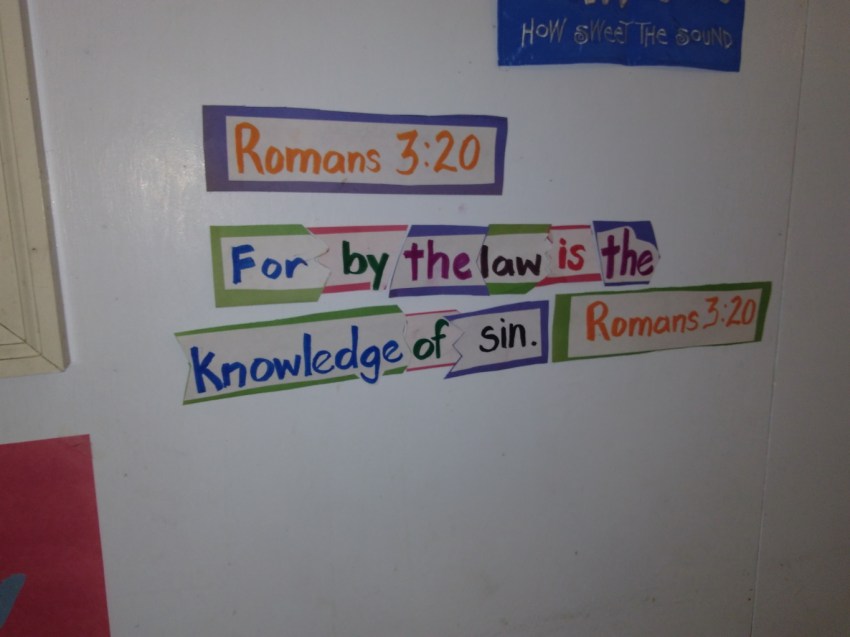 HOW SWEET THE SOUND
Romans 3:20
For by the law is the
Knowledge of sin. Romans 3:20